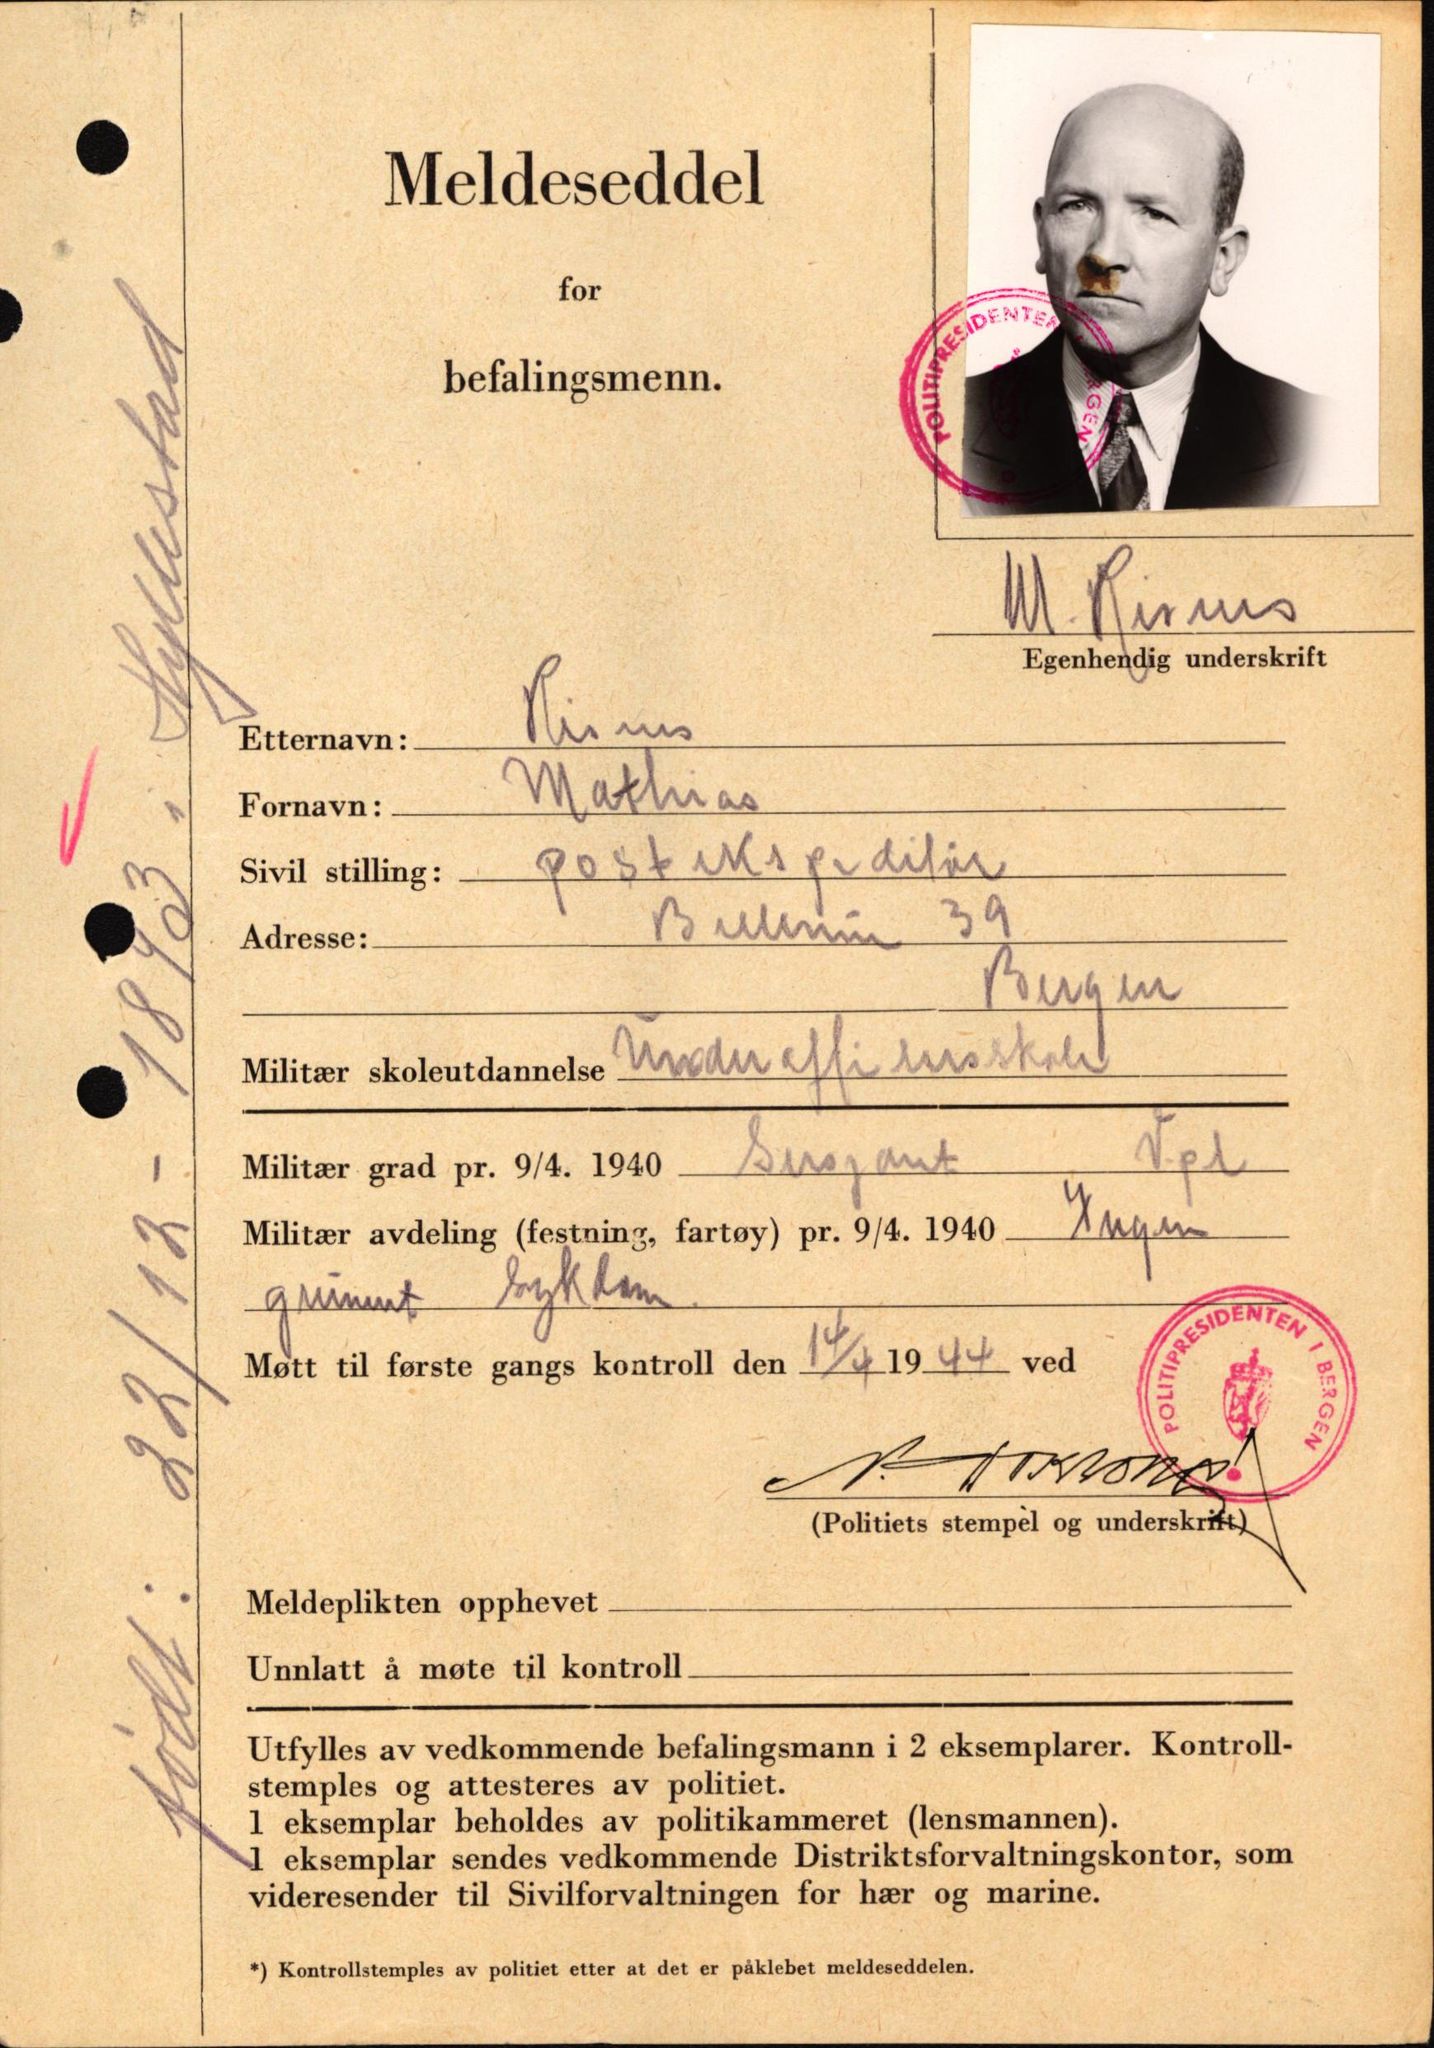 Meldeseddel
for
befalingsmenn.
POLITIPRESIDENTEN I BERGEN
M. Risnes
Egenhendig underskrift
Etternavn: Risnes
Fornavn: Mathias
Sivil stilling: postekspeditør
Adresse: 39
Bergen
Militær skoleutdannelse Underoffisersskole
Militær grad pr. 9/4. 1940 Sersjant V.pl
Militær avdeling (festning, fartøy) pr. 9/4. 1940 Ingen
grunnet sykdom.
Møtt til første gangs kontroll den 14/4 1944 ved
POLITIPRESIDENTEN I BERGEN
(Politiets stempel og underskrift)
Meldeplikten opphevet
Unnlatt å møte til kontroll
Utfylles av vedkommende befalingsmann i 2 eksemplarer. Kontroll-
stemples og attesteres av politiet.
1 eksemplar beholdes av politikammeret (lensmannen).
1 eksemplar sendes vedkommende Distriktsforvaltningskontor, som
videresender til Sivilforvaltningen for hær og marine.
*) Kontrollstemples av politiet etter at det er påklebet meldeseddelen.
født: 22/12 - 1893 i Hyllestad